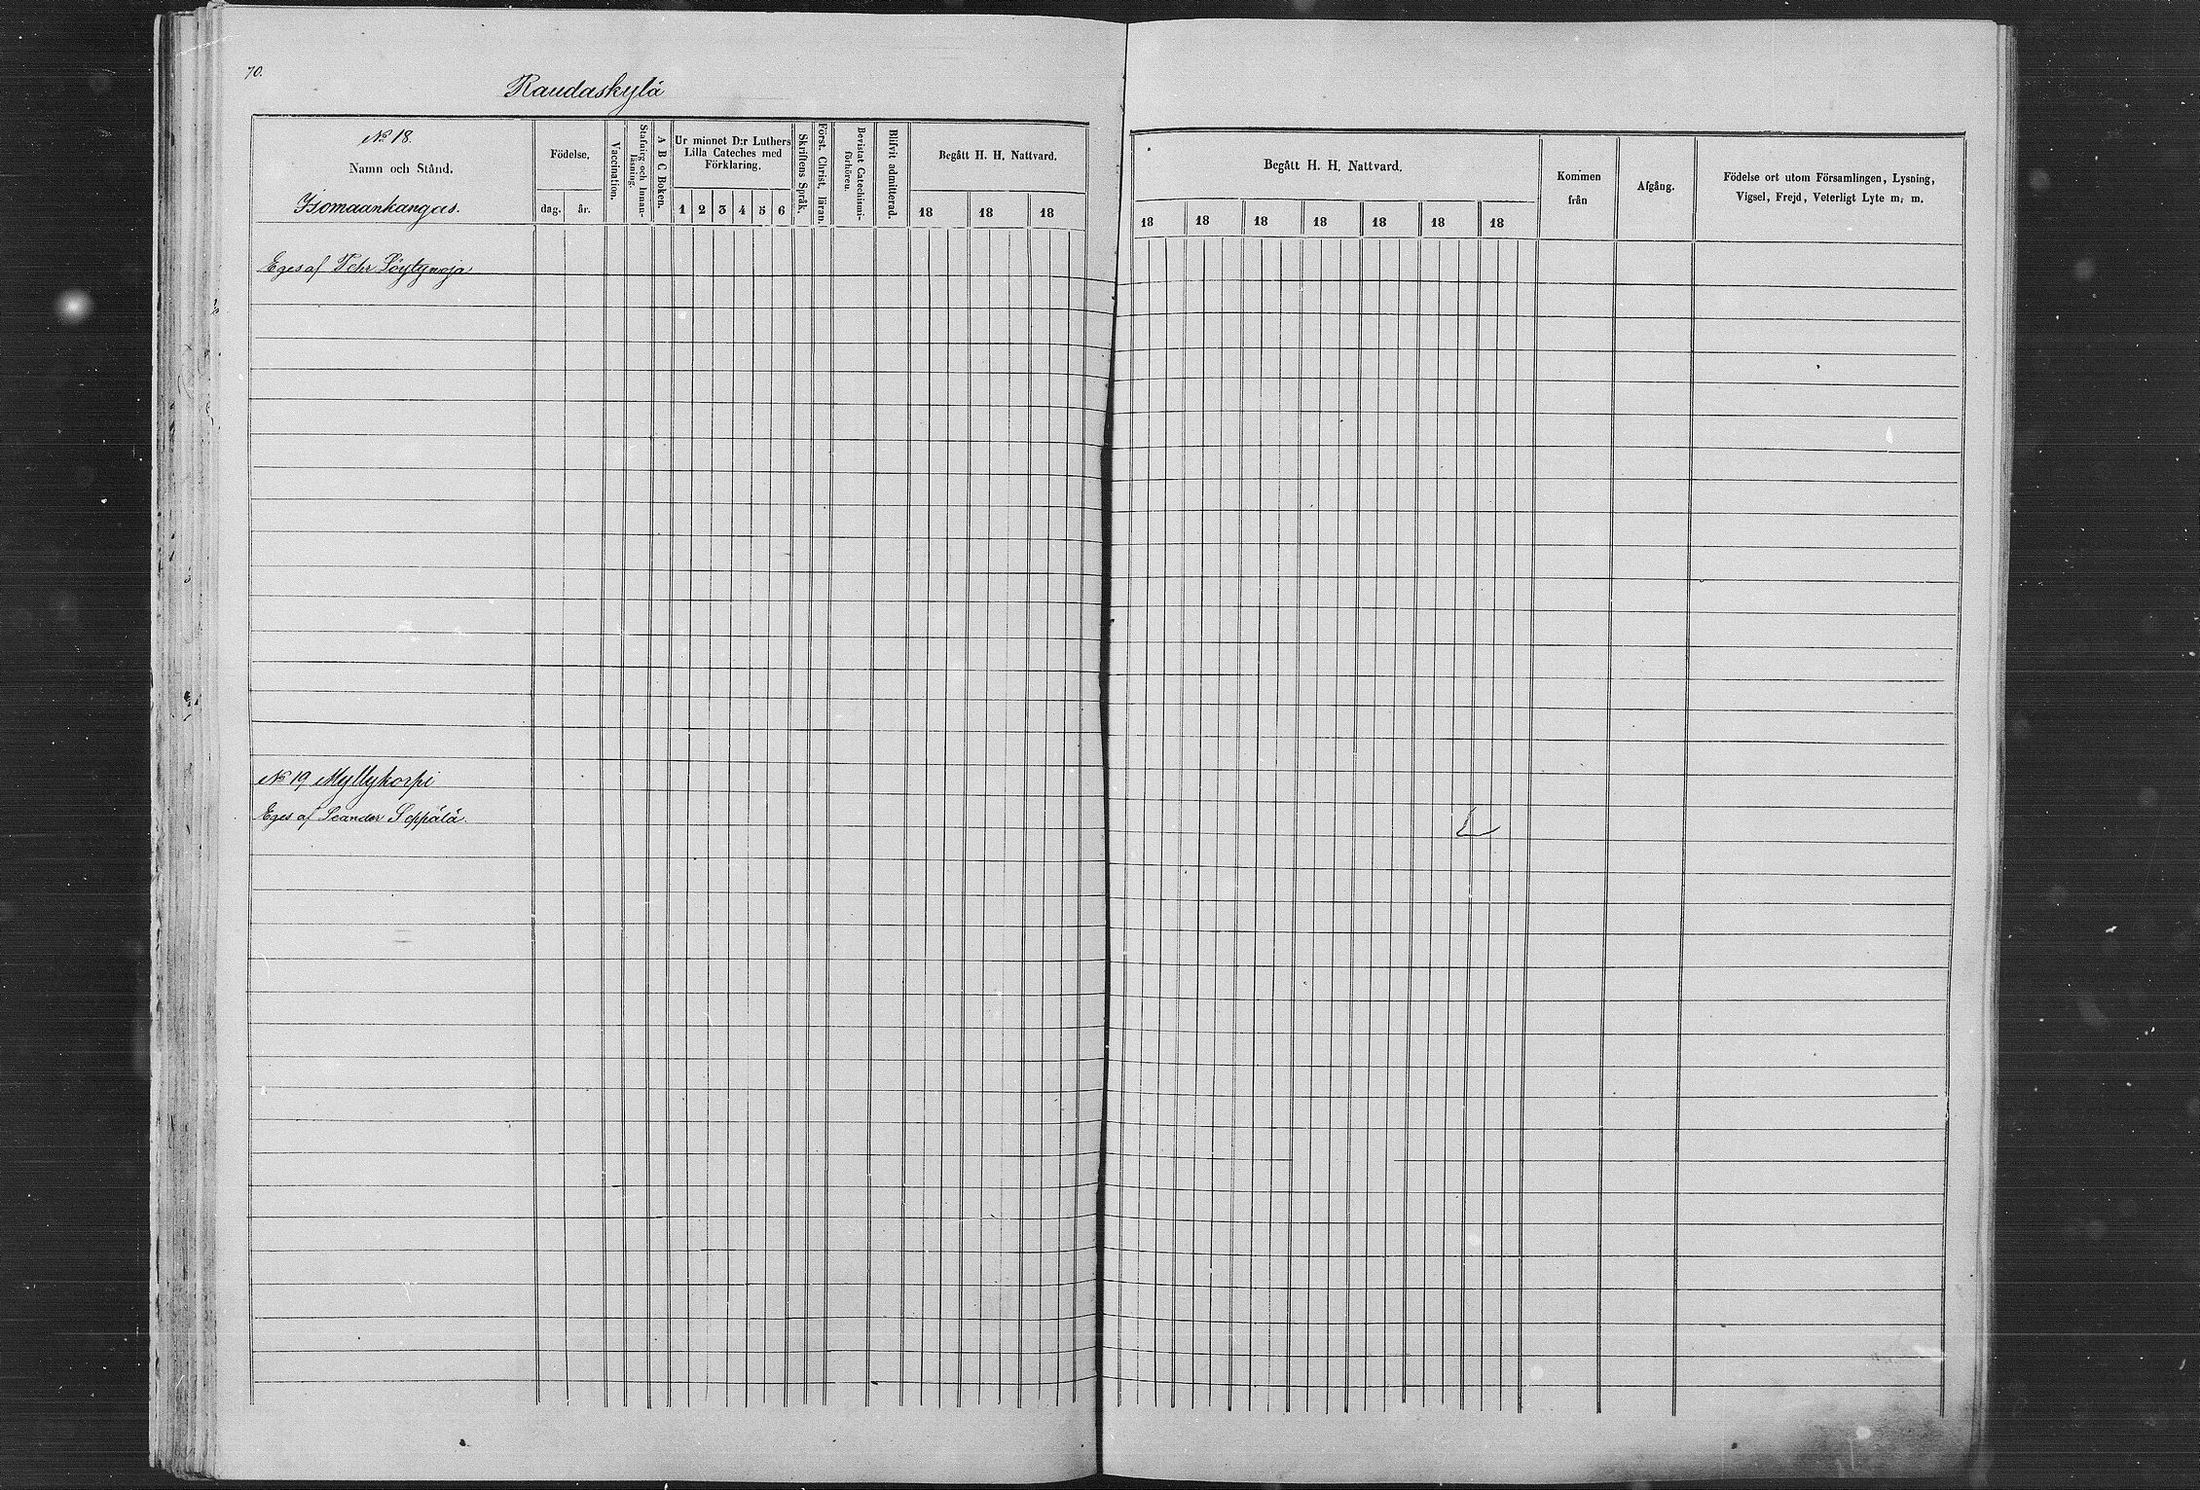 70.
Raudaskylä
No 18.
Namn och Stånd.
Isomaankangas.
Födelse.
dag. år.
Vaccination.
Stafning och Innan-
läsning.
A B C Boken.
Ur minnet D:r Luthers
Lilla Cateches med
Förklaring.
1 2 3 4 5 6
Skriftens Språk.
Först. Christ. läran.
Bevistat Catechismi-
förhören.
Blifvit admitterad.
Begått H. H. Nattvard.
18 18 18
Eges af Löytynoja
No 19 Myllykorpi
Eges af Leander Seppälä.
Begått H. H. Nattvard.
18 18 18 18 18 18 18
Kommen
från
Afgång.
Födelse ort utom Församlingen, Lysning,
Vigsel, Frejd, Veterligt Lyte m. m.